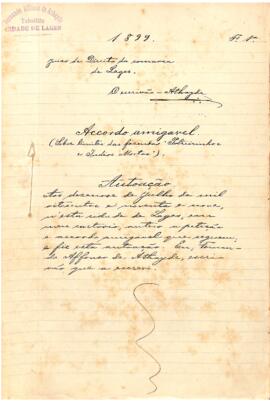 Fernando Affonso de Athayde
Tabellião
CIDADE DE LAGES
1899. Fl. 1.
Juizo de Direito da comarca
de Lages.
Escrivão - Athayde
Accordo amigavel
(Sobre limites das fazendas "Pelourinho
e Indios Mortos").
Autoação
Aos desenove de Julho de mil
oitocentos e noventa e nove,
n'esta cidade de Lages, em
meu cartorio, autuo a petição
e accordo amigavel que seguem;
e fiz esta autoação. Eu, Fernan-
do Affonso de Athayde, escri-
vão que a escrevi